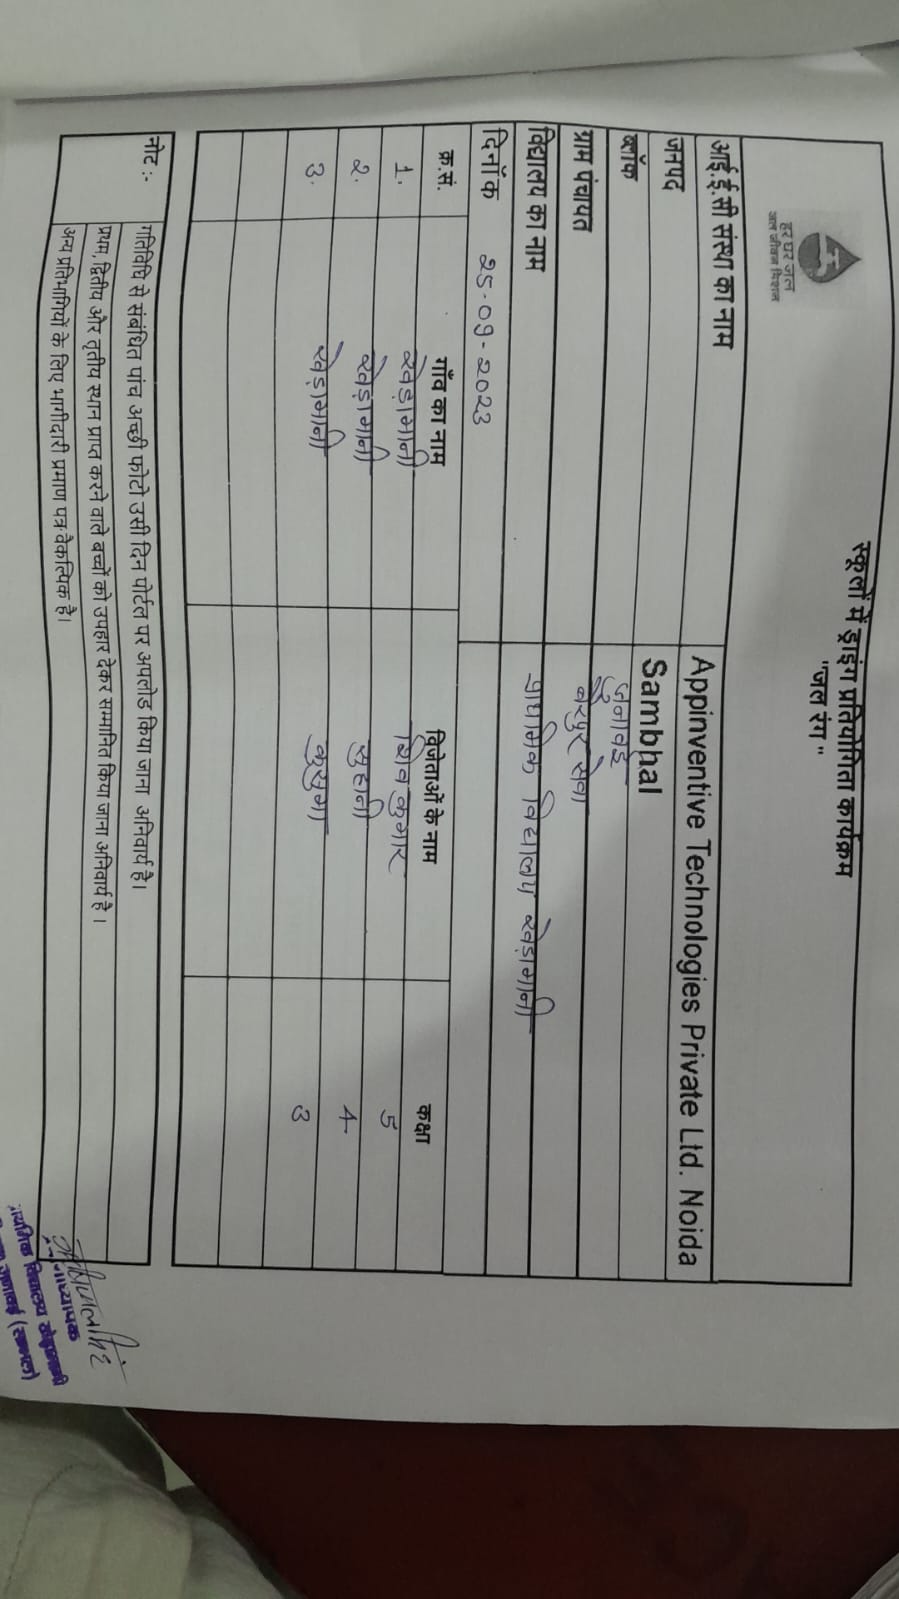 हर घर जल
जल जीवन मिशन
स्कूलों में ड्राइंग प्रतियोगिता कार्यक्रम
"जल रंग"
आई.ई.सी संस्था का नाम Appinventive Technologies Private Ltd. Noida
जनपद Sambhal
ब्लॉक जुनावई
ग्राम पंचायत
विद्यालय का नाम प्राथमिक विद्यालय खेड़ामानी
दिनाँक 25-09-2023
क्र.सं. गाँव का नाम विजेताओं के नाम कक्षा
1. खेड़ामानी शिवकुमार 5
2. खेड़ामानी सुहानी 4
3. खेड़ामानी कुसुमा 3
नोट :- गतिविधि से संबंधित पांच अच्छी फोटो उसी दिन पोर्टल पर अपलोड किया जाना अनिवार्य है।
प्रथम, द्वितीय और तृतीय स्थान प्राप्त करने वाले बच्चों को उपहार देकर सम्मानित किया जाना अनिवार्य है ।
अन्य प्रतिभागियों के लिए भागीदारी प्रमाण पत्र वैकल्पिक है।